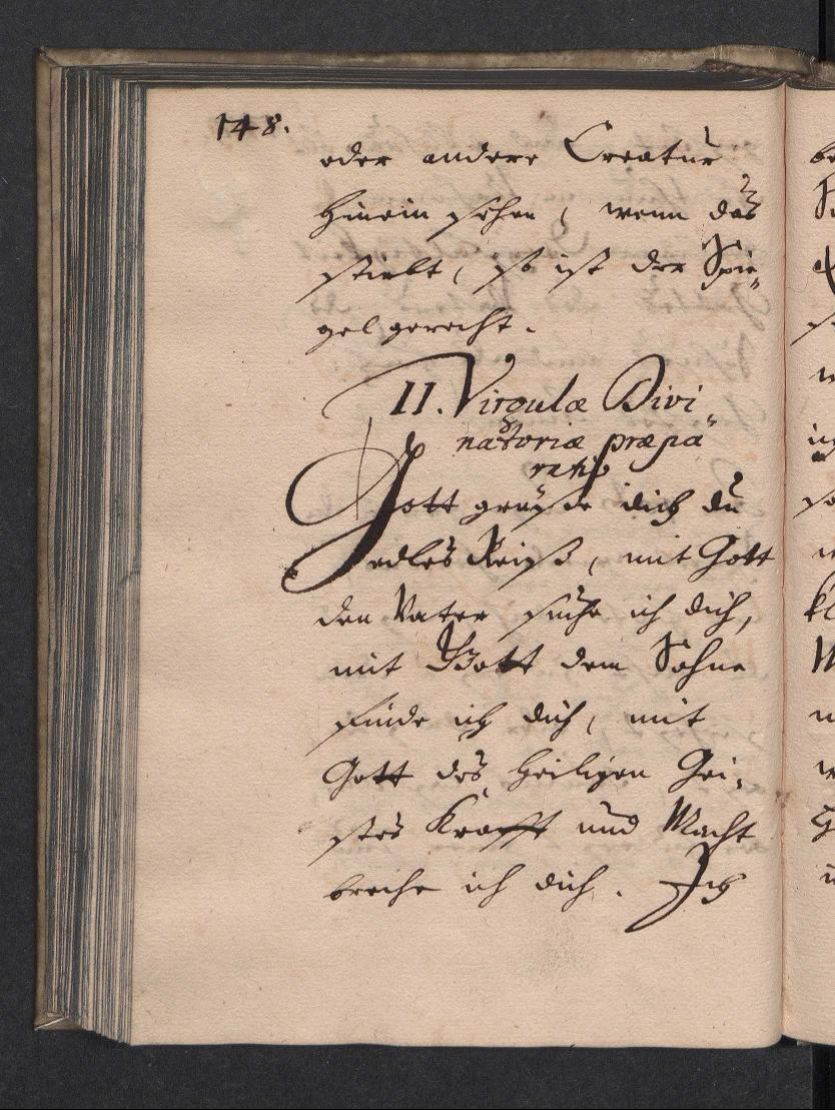 148.
oder andere Creatur
hinein sehen, wenn das
stirbt, so ist der Spie„
gel gerecht.
II. Virgulæ Divi„
natoriæ præpa„
ratio
Gott grüsse dich du
edles Reiß, mit Gott
den Vater suche ich dich,
mit Gott dem Sohne
finde ich dich, mit
Gott des heiligen Gei„
stes Krafft und Macht
breche ich dich. Ich